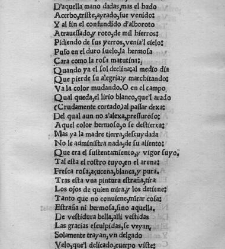 D'aquella mano dadas, mas el hado
Acerbo, triste, ayrado, fue venido:
Y al fin el confundido d'alboroto
Atrauessado, y roto, de mil hierros:
Pidiendo de sus yerros, venia'l cielo:
Puso en el duro suelo, la hermosa
Cara como la rosa matutina:
Quando ya el sol declina; al medio dia
Que pierde su alegria; y marchitando
Va la color mudando. O en el campo
Qual queda, el lirio blanco, qu'l arado
Crudamente cortado, al passar dexa:
Del qual aun no s'alexa, presuroso:
Aquel color hermoso, o se destierra:
Mas ya la madre tierra, descuydada
No le administra nada, de su aliento:
Que era el sustentamiento, y vigor suyo,
Tal esta el rostro tuyo, en el arena:
Fresca rosa, açucena, blanca, y pura.
Tras esta vna pintura estraña, tira
Los ojos de quien mira; y los detiene:
Tanto que no conuiene, mirar cosa:
Estraña ni hermosa, sino aquella,
De vestidura bella, alli vestidas
Las gracias esculpidas, se veyan,
Solamente trayan, vn delgado
Velo, qu'l delicado, cuerpo viste: